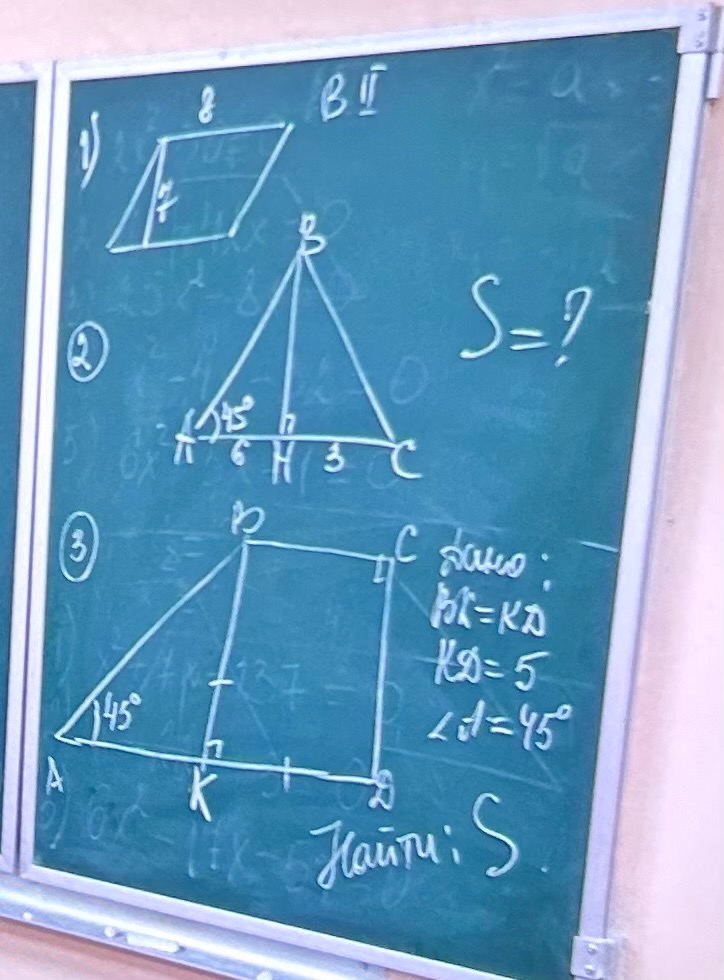 В II
1)
8
7
S = ?
②
B
45°
A
6
H
3
C
③
B
C
Дано:
BK = KD
KD = 5
∠A = 45°
45°
A
K
D
Найти: S